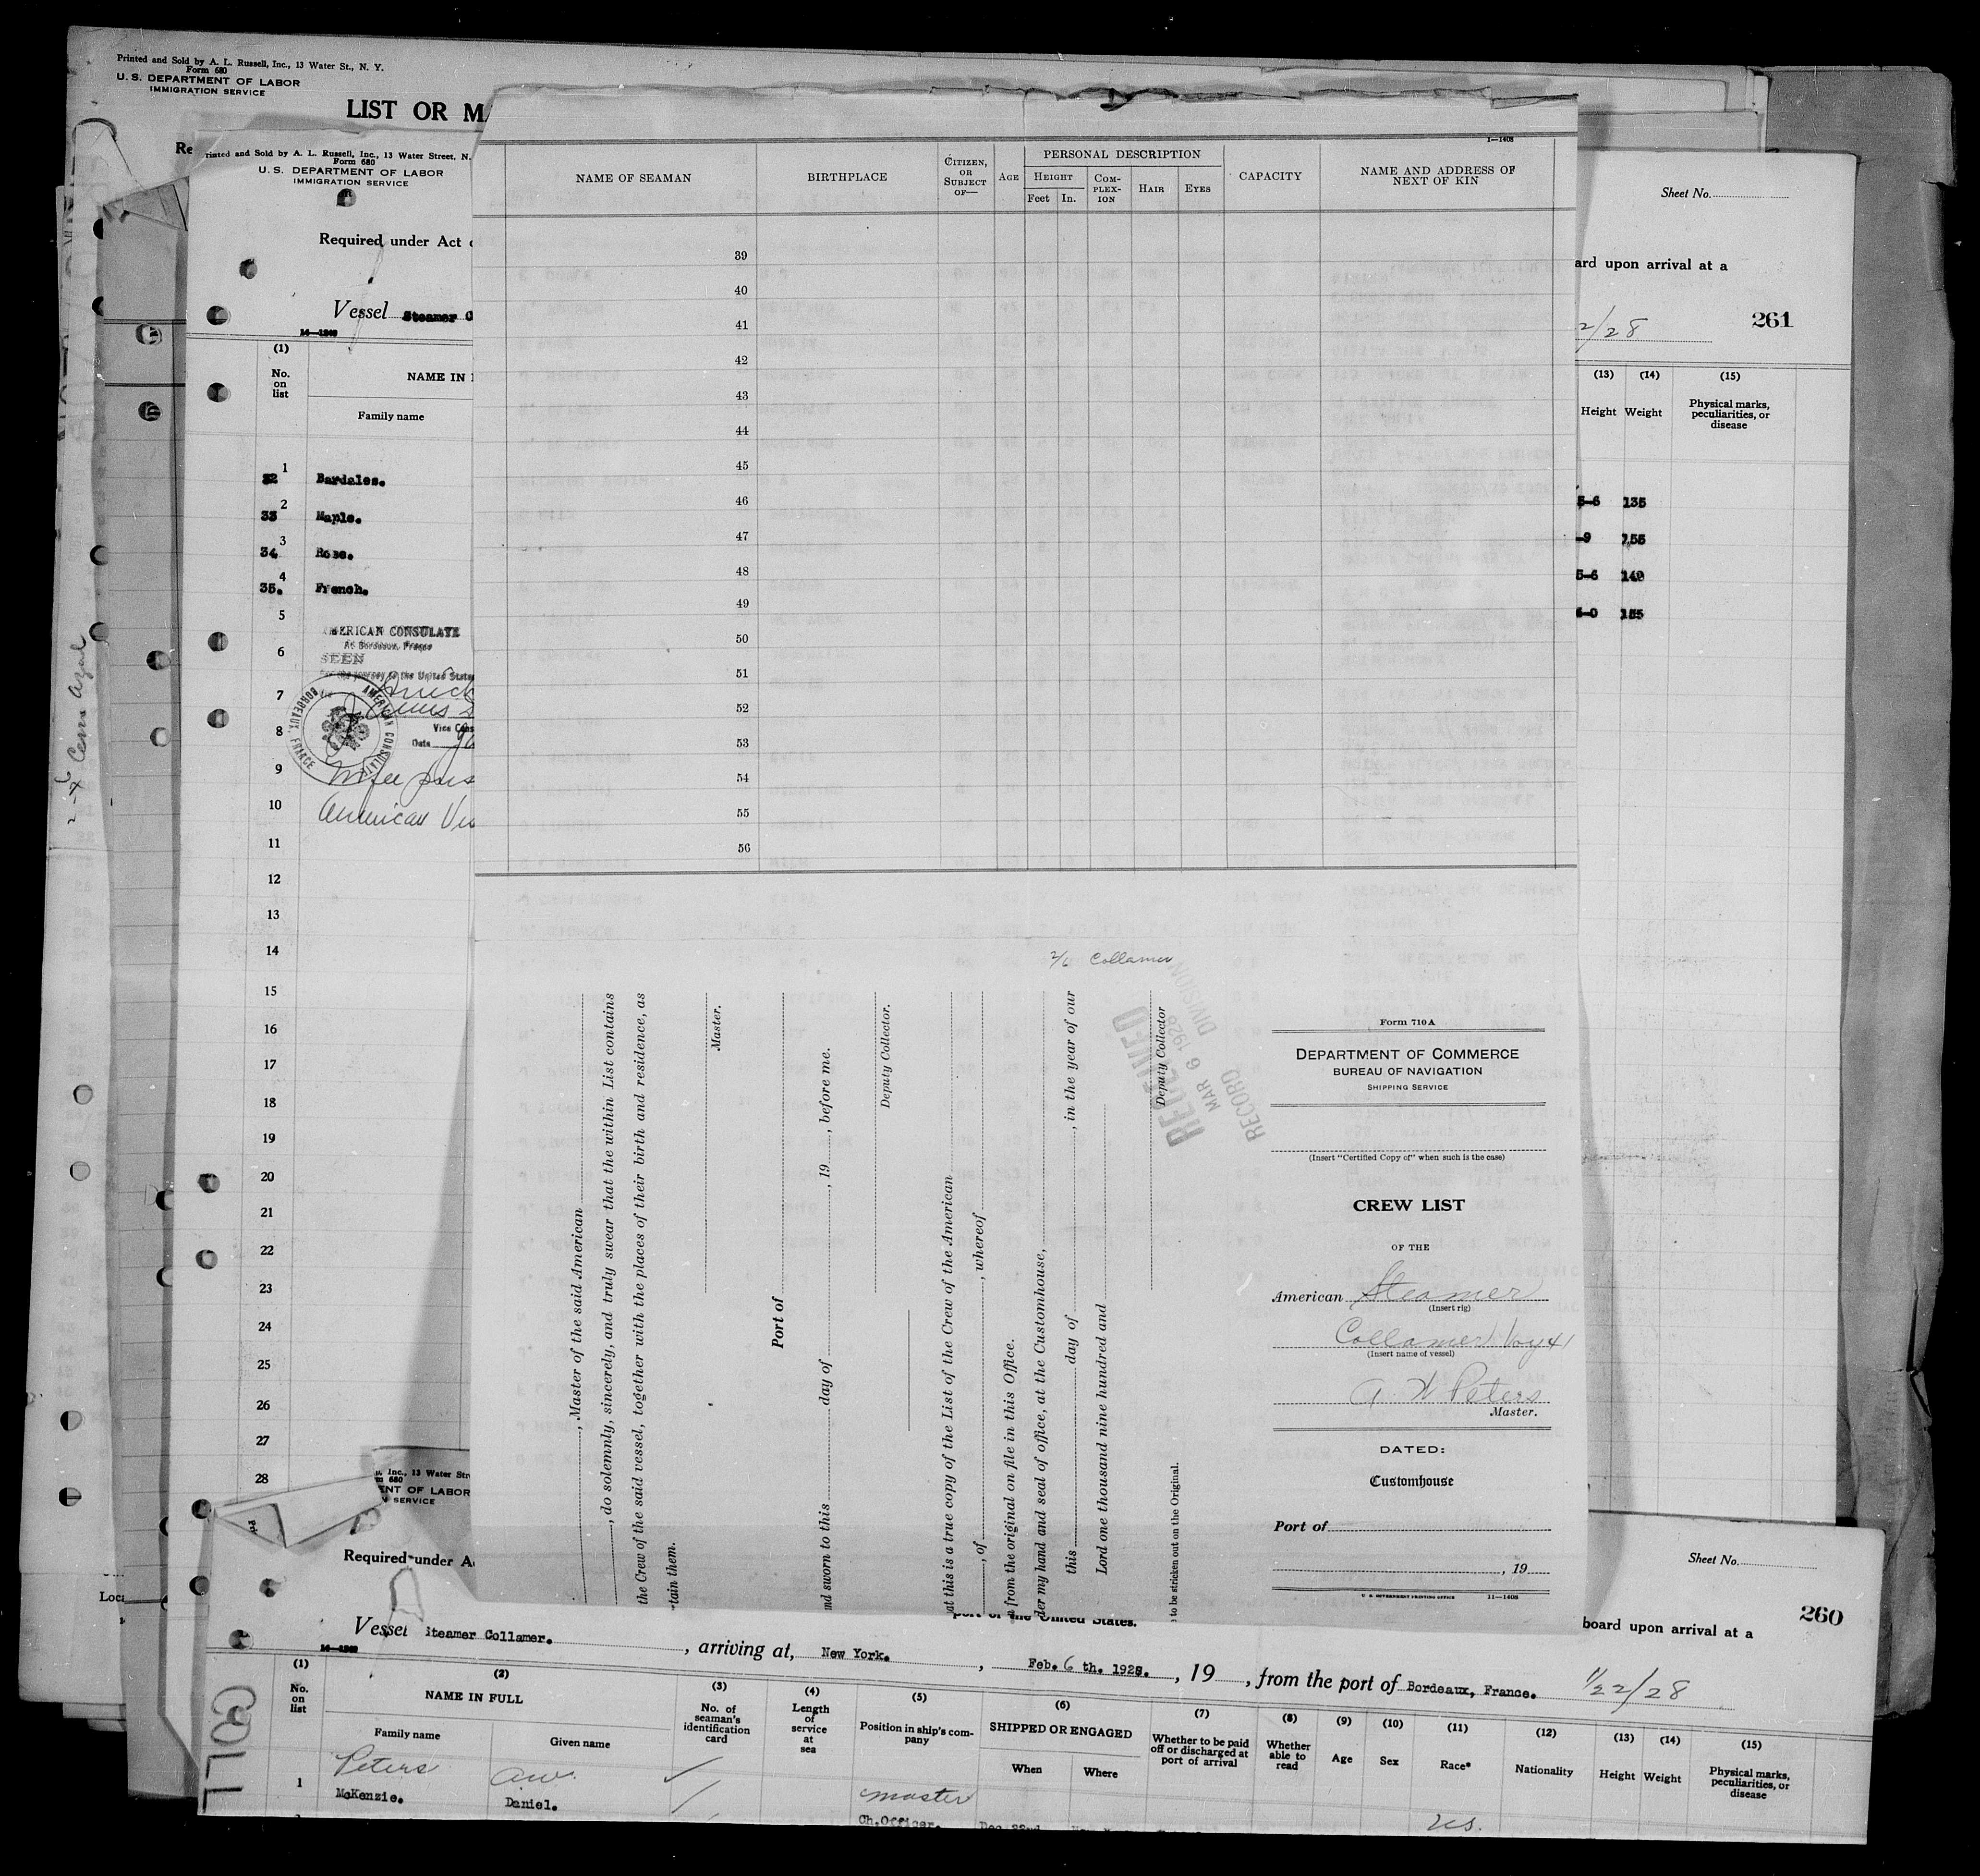 Printed and Sold by A. L. Russell, Inc., 13 Water St., N. Y.
Form 680
U. S. DEPARTMENT OF LABOR
IMMIGRATION SERVICE
LIST OR MA
Re
rinted and Sold by A. L. Russell, Inc., 13 Water Street, N.
Form 680
U. S. DEPARTMENT OF LABOR
IMMIGRATION SERVICE
Required under Act
Vessel Steamer C
14—1240
(1)
No. on list
NAME IN
Family name
1
32 Bardales.
2
33 Maple.
3
34 Rose.
4
35. French.
5
6
7
8
9
10
11
12
13
14
15
16
17
18
19
20
21
22
23
24
25
26
27
28
AMERICAN CONSULATE
At Bordeaux, France
SEEN
For the journey to the United States
Vice Cons
Date
AMERICAN CONSULATE
BORDEAUX, FRANCE
American
1—1408
NAME OF SEAMAN
BIRTHPLACE
CITIZEN, OR SUBJECT OF—
AGE
PERSONAL DESCRIPTION
HEIGHT
Feet In.
COM-PLEX-ION
HAIR
EYES
CAPACITY
NAME AND ADDRESS OF NEXT OF KIN
39
40
41
42
43
44
45
46
47
48
49
50
51
52
53
54
55
56
2/6 Collamer
, Master of the said American
, do solemnly, sincerely, and truly swear that the within List contains
the Crew of the said vessel, together with the places of their birth and residence, as
tain them.
Master.
Port of
nd sworn to this day of , 19 , before me.
Deputy Collector.
at this is a true copy of the List of the Crew of the American
, of , whereof
from the original on file in this Office.
der my hand and seal of office, at the Customhouse,
this day of , in the year of our
Lord one thousand nine hundred and
Deputy Collector
to be stricken out on the Original.
RECEIVED
MAR 6 1928
RECORD DIVISION
Form 710 A
DEPARTMENT OF COMMERCE
BUREAU OF NAVIGATION
SHIPPING SERVICE
(Insert "Certified Copy of" when such is the case)
CREW LIST
OF THE
American Steamer
(Insert rig)
Collamer Voy 41
(Insert name of vessel)
A W Peters
Master.
DATED:
Customhouse
Port of
, 19
U. S. GOVERNMENT PRINTING OFFICE 11—1408
Sheet No.
ard upon arrival at a
2/28
261
(13) (14) (15)
Height Weight
Physical marks, peculiarities, or disease
5-6 135
-9 155
5-6 140
6-0 155
2-4 Cerro Azul
Loca
., Inc., 13 Water Stre
m 680
ENT OF LABOR
N SERVICE
Required under A
Sheet No.
port of the United States.
board upon arrival at a
260
Vessel Steamer Collamer. , arriving at, New York. , Feb. 6 th. 1928. , 19 , from the port of Bordeaux, France. 1/22/28
14—1240
(1) (2) (3) (4) (5) (6) (7) (8) (9) (10) (11) (12) (13) (14) (15)
No. on list
NAME IN FULL
Family name
Given name
No. of seaman's identification card
Length of service at sea
Position in ship's company
SHIPPED OR ENGAGED
When
Where
Whether to be paid off or discharged at port of arrival
Whether able to read
Age
Sex
Race*
Nationality
Height
Weight
Physical marks, peculiarities, or disease
Peters A W. master
1 McKenzie. Daniel. Ch.Officer. Dec 22nd. U.S.
COLL